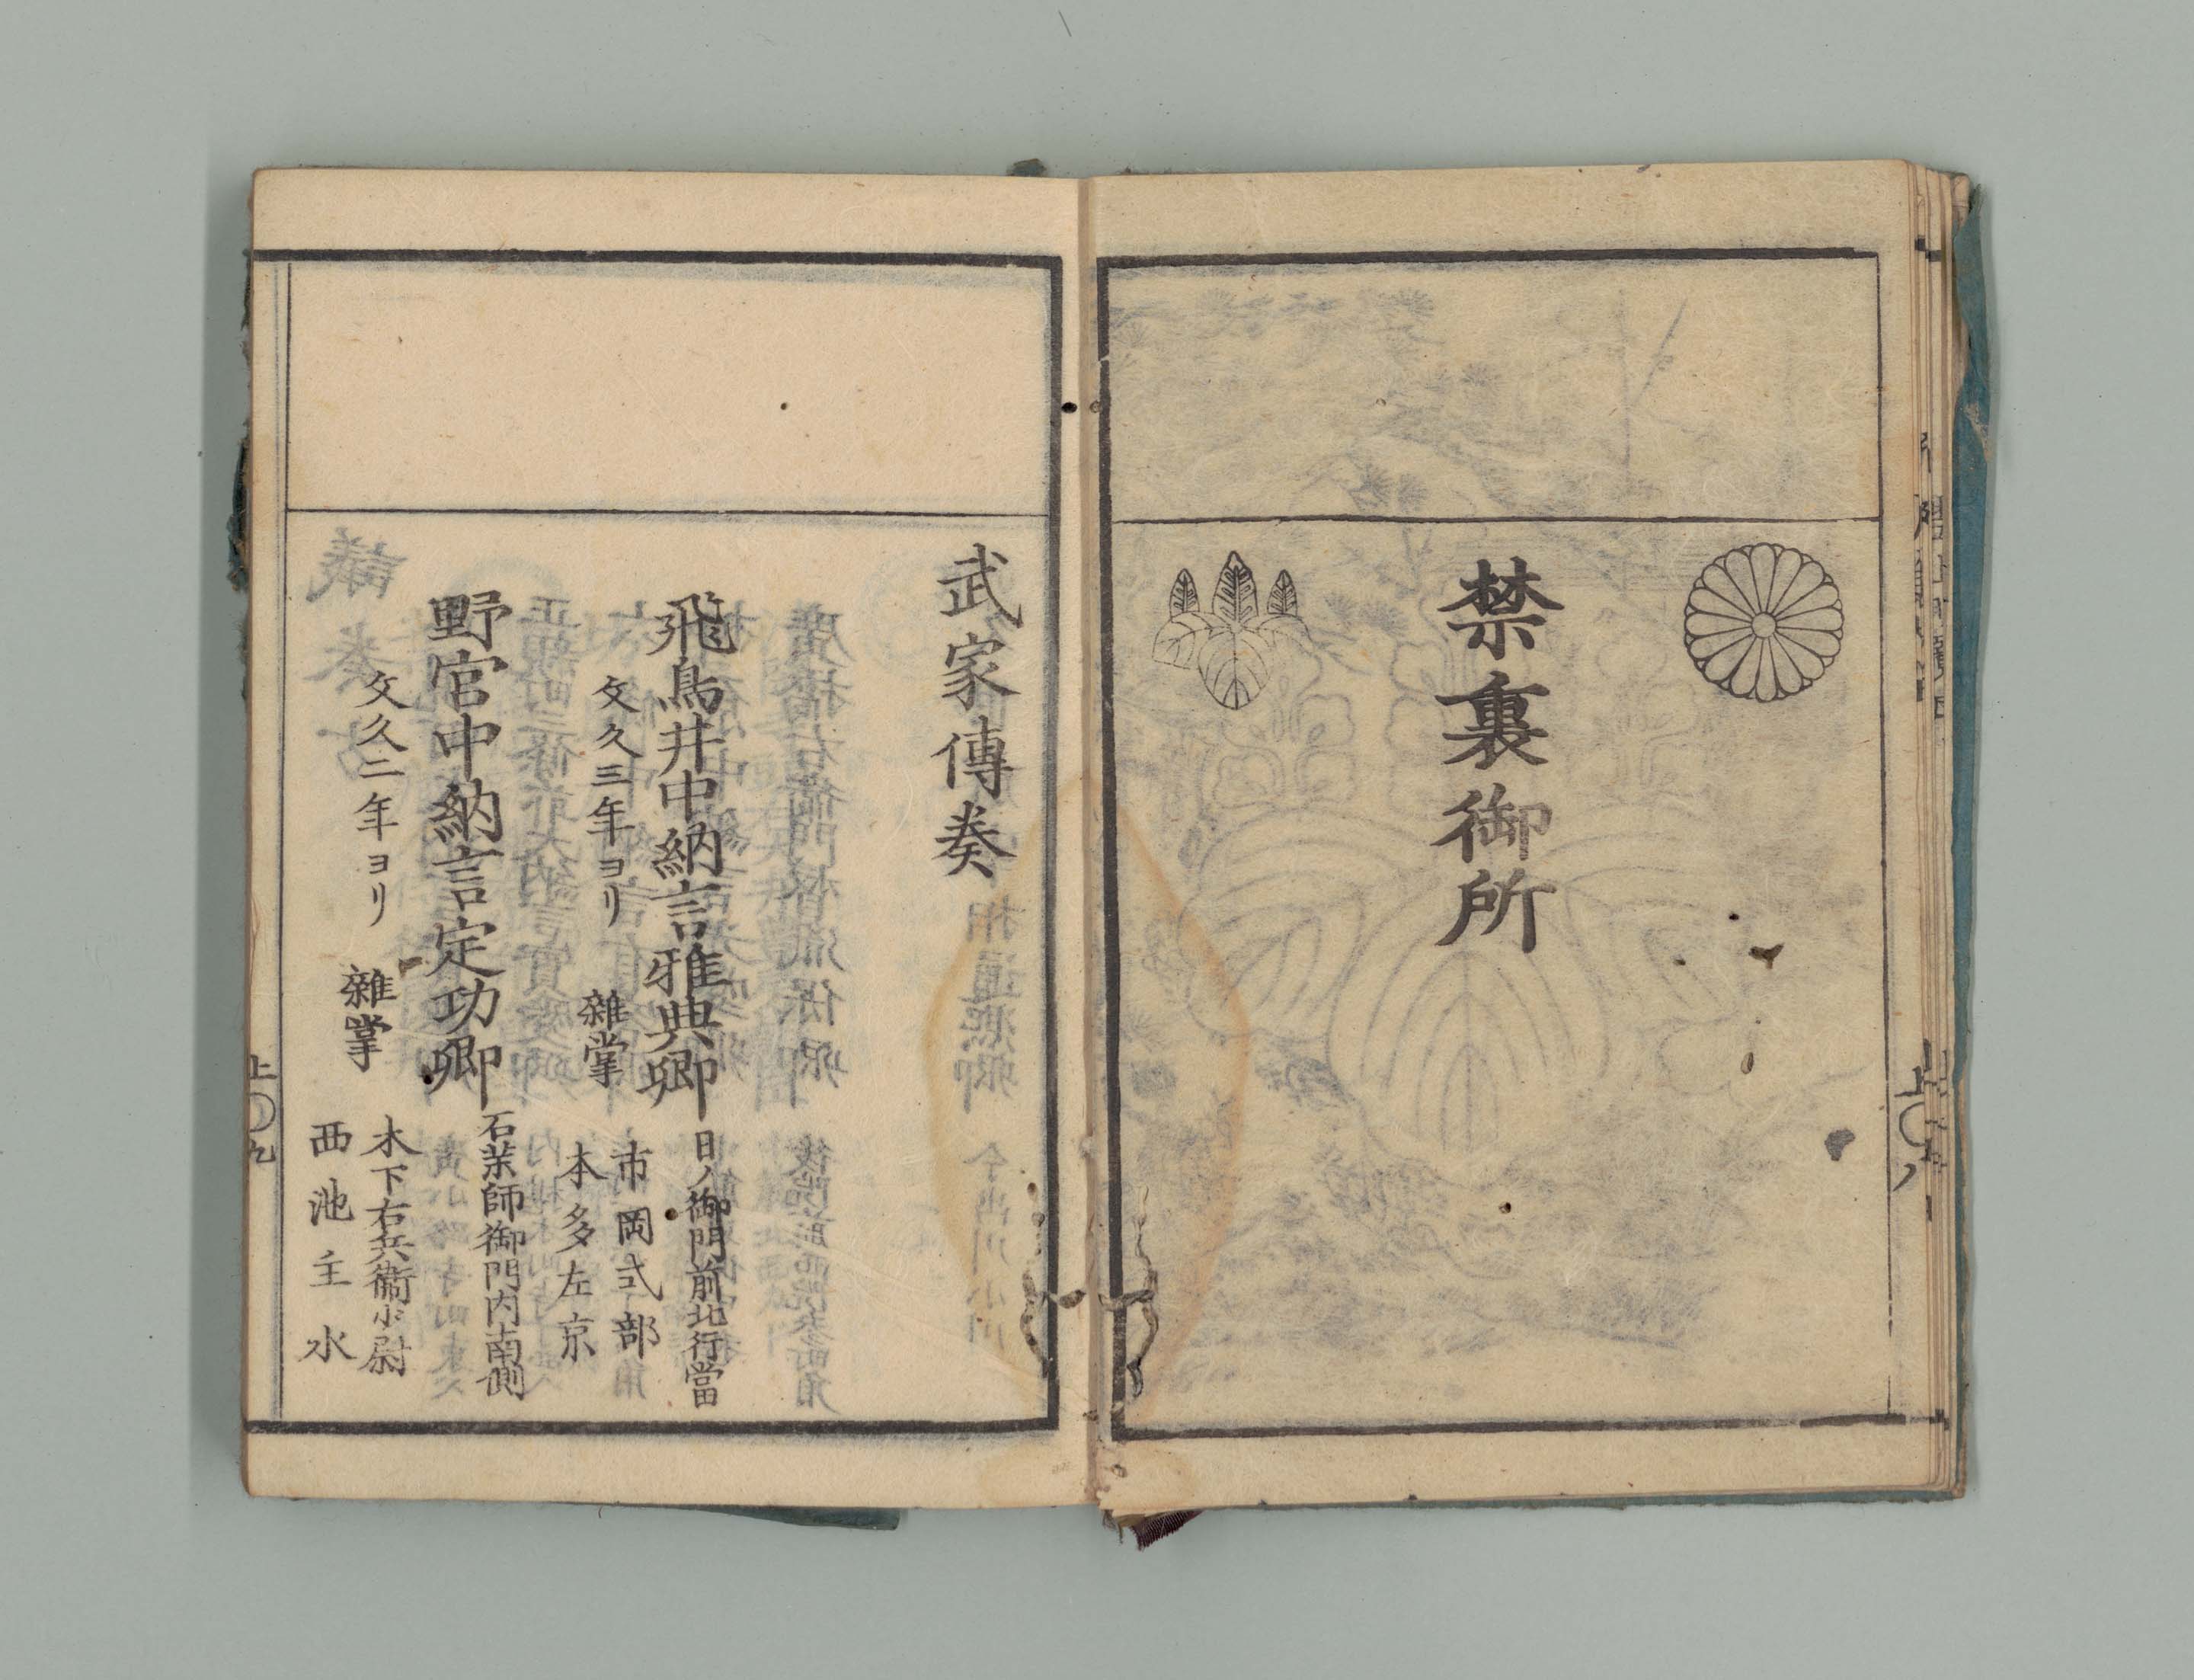 禁裏御所
上〇八
武家傳奏
飛鳥井中納言雅典卿
日ノ御門前北行當
文久三年ヨリ
雜掌
市岡式部
本多左京
野宮中納言定功卿
石茱師御門内南側
文久二年ヨリ
雜掌
木下右兵衞少尉
西池主水
上〇九